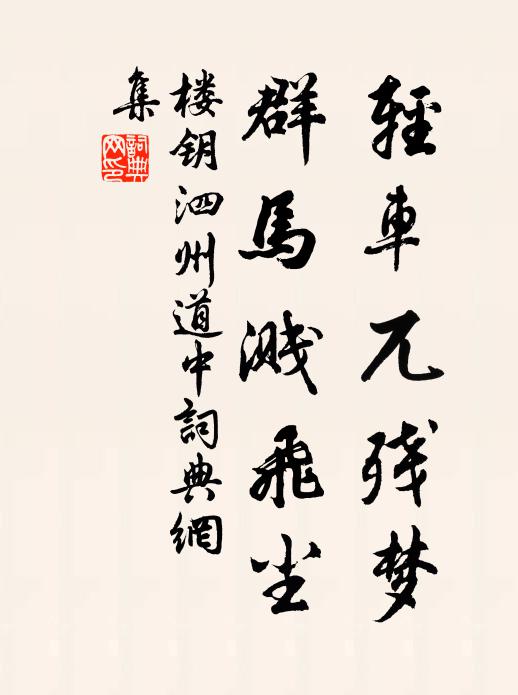 輕車兀残梦
群馬溅飛尘
楼钥泗州道中詞典網
集
詞典
网印